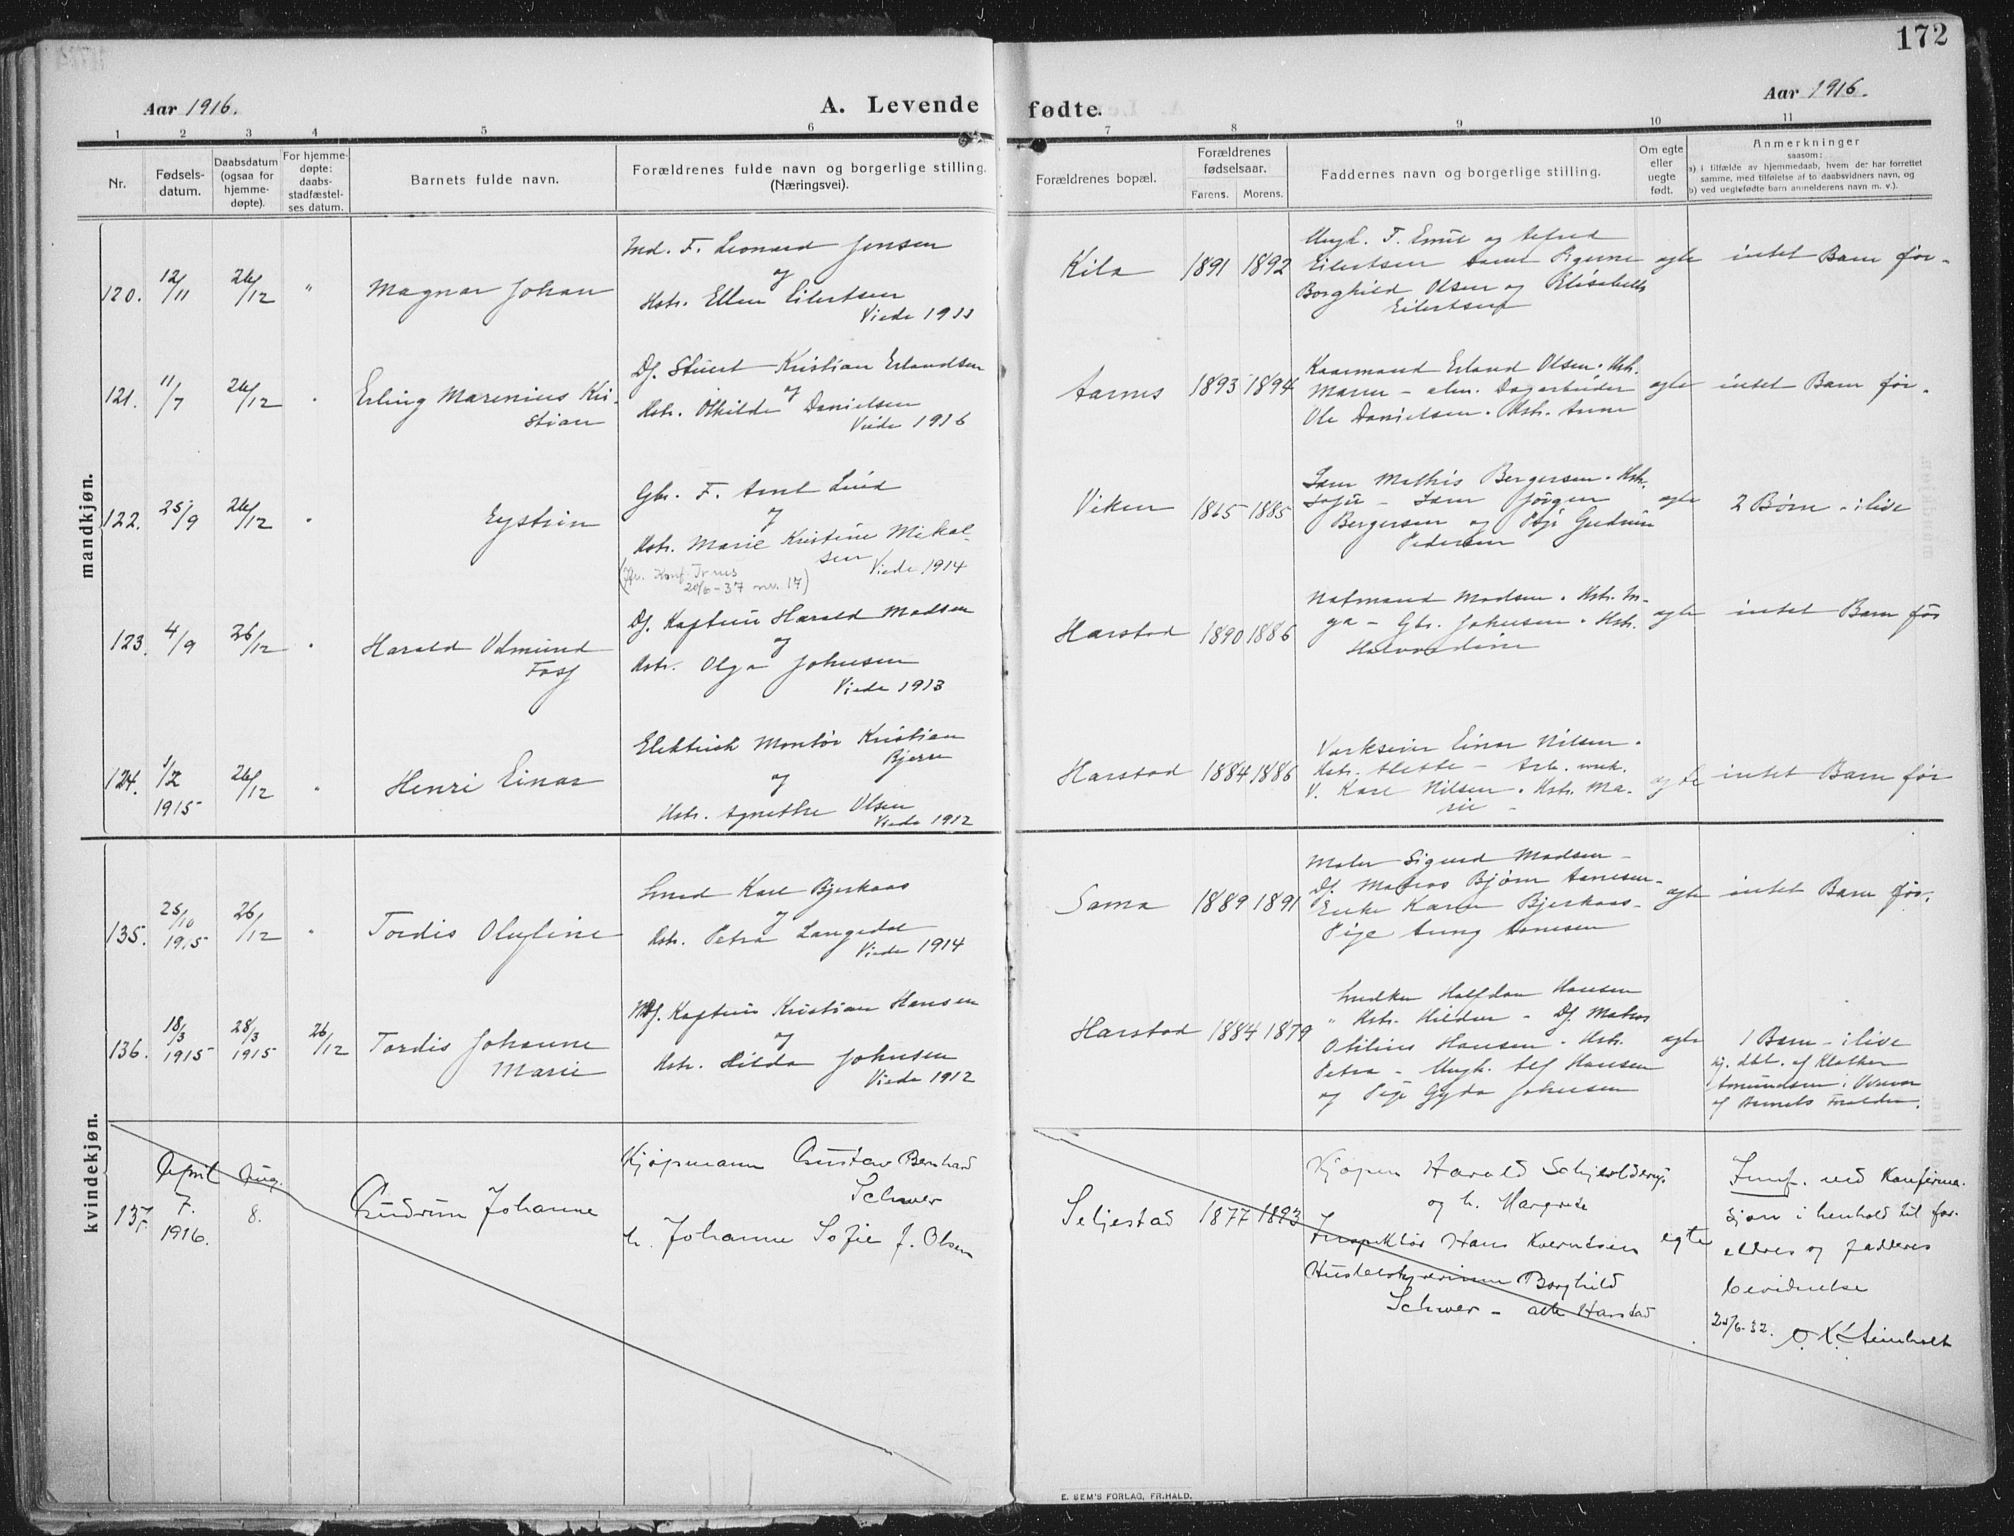 172
Aar 1916.
A. Levende fødte.
Aar 1916.
1 2 3 4 5 6 7 8 9 10 11
Nr.
Fødselsdatum.
Daabsdatum (ogsaa for hjemmedøpte).
For hjemmedøpte: daabsstadfæstelses datum.
Barnets fulde navn.
Forældrenes fulde navn og borgerlige stilling. (Næringsvei).
Forældrenes bopæl.
Forældrenes fødselsaar.
Farens. Morens.
Faddernes navn og borgerlige stilling.
Om egte eller uegte født.
Anmerkninger
saasom:
a) i tilfælde av hjemmedaab, hvem der har forrettet
samme, med tilføielse af to daabsvidners navn, og
b) ved uegtefødte barn anmelderens navn m. v.).
mandkjøn.
120. 12/11 26/12 " Magnar Johan
Ind. F. Leonard Jensen
og
Hstr. Ellen Eilertsen
Viede 1911
Kila 1891 1892
Ungk. F. Emil og Alfred
Eilertsen samt Pigerne
Borghild Olsen og Elisabeth
Eilertsen
egte intet Barn før.
121. 11/7 26/12 " Erling Marenius Kristian
Dj. Stuert Kristian Erlandsen
og
Hstr. Othilde Danielsen
Viede 1916
Aarnes 1893 1894
Kaarmand Erland Olsen. Hstr.
Maren – Dagarbeider
Ole Danielsen. Hstr. Anne
egte intet Barn før.
122. 25/9 26/12 " Eystein
Gbr. F. Arnt Lind
og
Hstr. Marie Kristine Mikalsen
Viede 1914
20/6-37 nr. 17)
Viken 1865 1885
Mathis Bergersen. Hstr.
Sofie – Jørgen
Bergersen og Pige Gudrun
Pedersen
egte 2 Børn – i live
123. 4/9 26/12 " Harald Odmund
Dj. Kaptein Harald Madsen
og
Hstr. Olga Johnsen
Viede 1913
Harstad 1890 1886
Madsen. Hstr. Inga – Gbr. Johnsen. Hstr.
egte intet Barn før
124. 1/2 1915 26/12 " Henri Einar
Elektrisk Montør Kristian
og
Hstr. Agnethe Olsen
Viede 1912
Harstad 1884 1886
Verkseier Einar Nilsen.
Hstr. – Arb.
V. Karl Nilsen. Hstr. Marie –
egte intet Barn før
kvindekjøn.
135. 25/10 1915 26/12 " Tordis Olufine
Smed Karl Bjerkaas
og
Hstr. Petra Langedal
Viede 1914
Sama 1889 1891
Maler Sigurd Madsen –
Dj. Matros Bjørn Arnesen –
Enke Karen Bjerkaas –
Pige
egte intet Barn før.
136. 18/3 1915 28/3 1915 26/12 Tordis Johanne
Marie
Dj. Kaptein Kristian Hansen
og
Hstr. Hilda Johnsen
Viede 1912
Harstad 1884 1879
Halfdan Hansen
" Hstr. – Dj. Matros
Hansen. Hstr.
Petra – Ungk. Alf Hansen
og Pige Gyda Johnsen
egte 1 Barn – i live
hj. dbt. af Klokker
af Barnets Forældre.
137. April 7. 1916. Aug. 8. Gudrun Johanne
Kjøpmann Gustav Bernhard
Schwer
h. Johanne Sofie f. Olsen
Seljestad 1877 1893
Kjøpm Harald Schjelderup
og h. Margrete
Inspektør Hans
Borghild
Schwer – alle Harstad
egte
Innf. ved Konfirmasjon i henhold til foreldres og fadderes
bevidnelse
25/6-32. O. K. Steinholt
E. SEM'S FORLAG, FR.HALD.